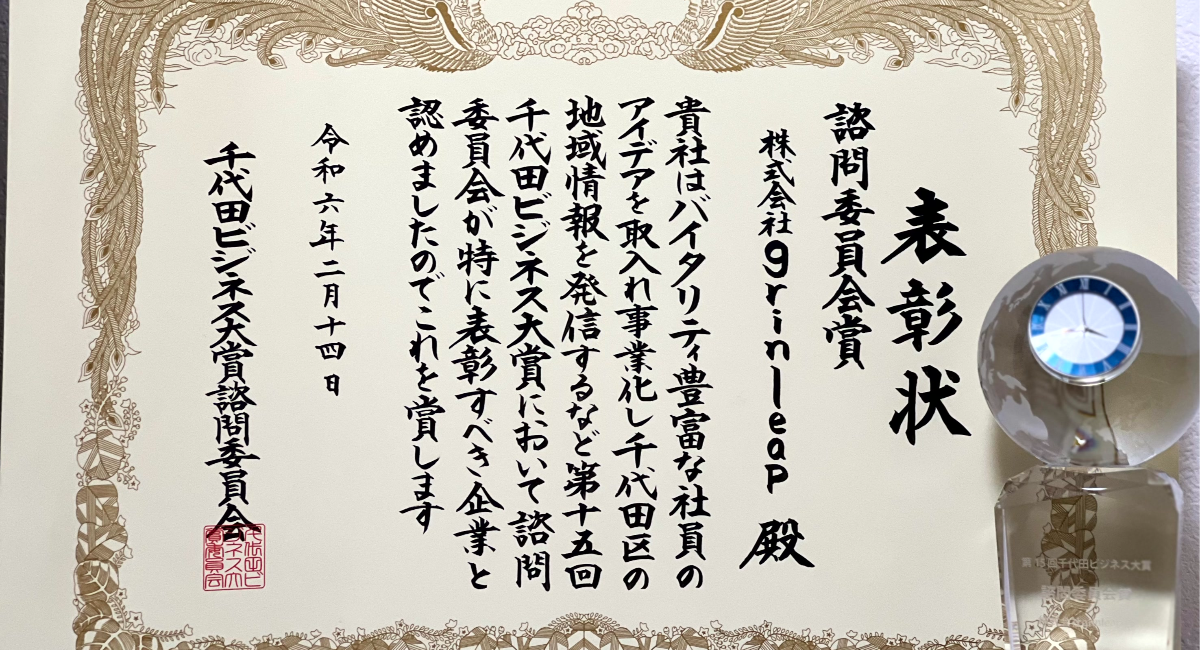 表彰状
諮問委員会賞
株式会社grinleap 殿
貴社はバイタリティ豊富な社員の
アイデアを取入れ事業化し千代田区の
地域情報を発信するなど第十五回
千代田ビジネス大賞において諮問
委員会が特に表彰すべき企業と
認めましたのでこれを賞します
令和六年二月十四日
千代田ビジネス大賞諮問委員会
第15回千代田ビジネス大賞
諮問委員会賞